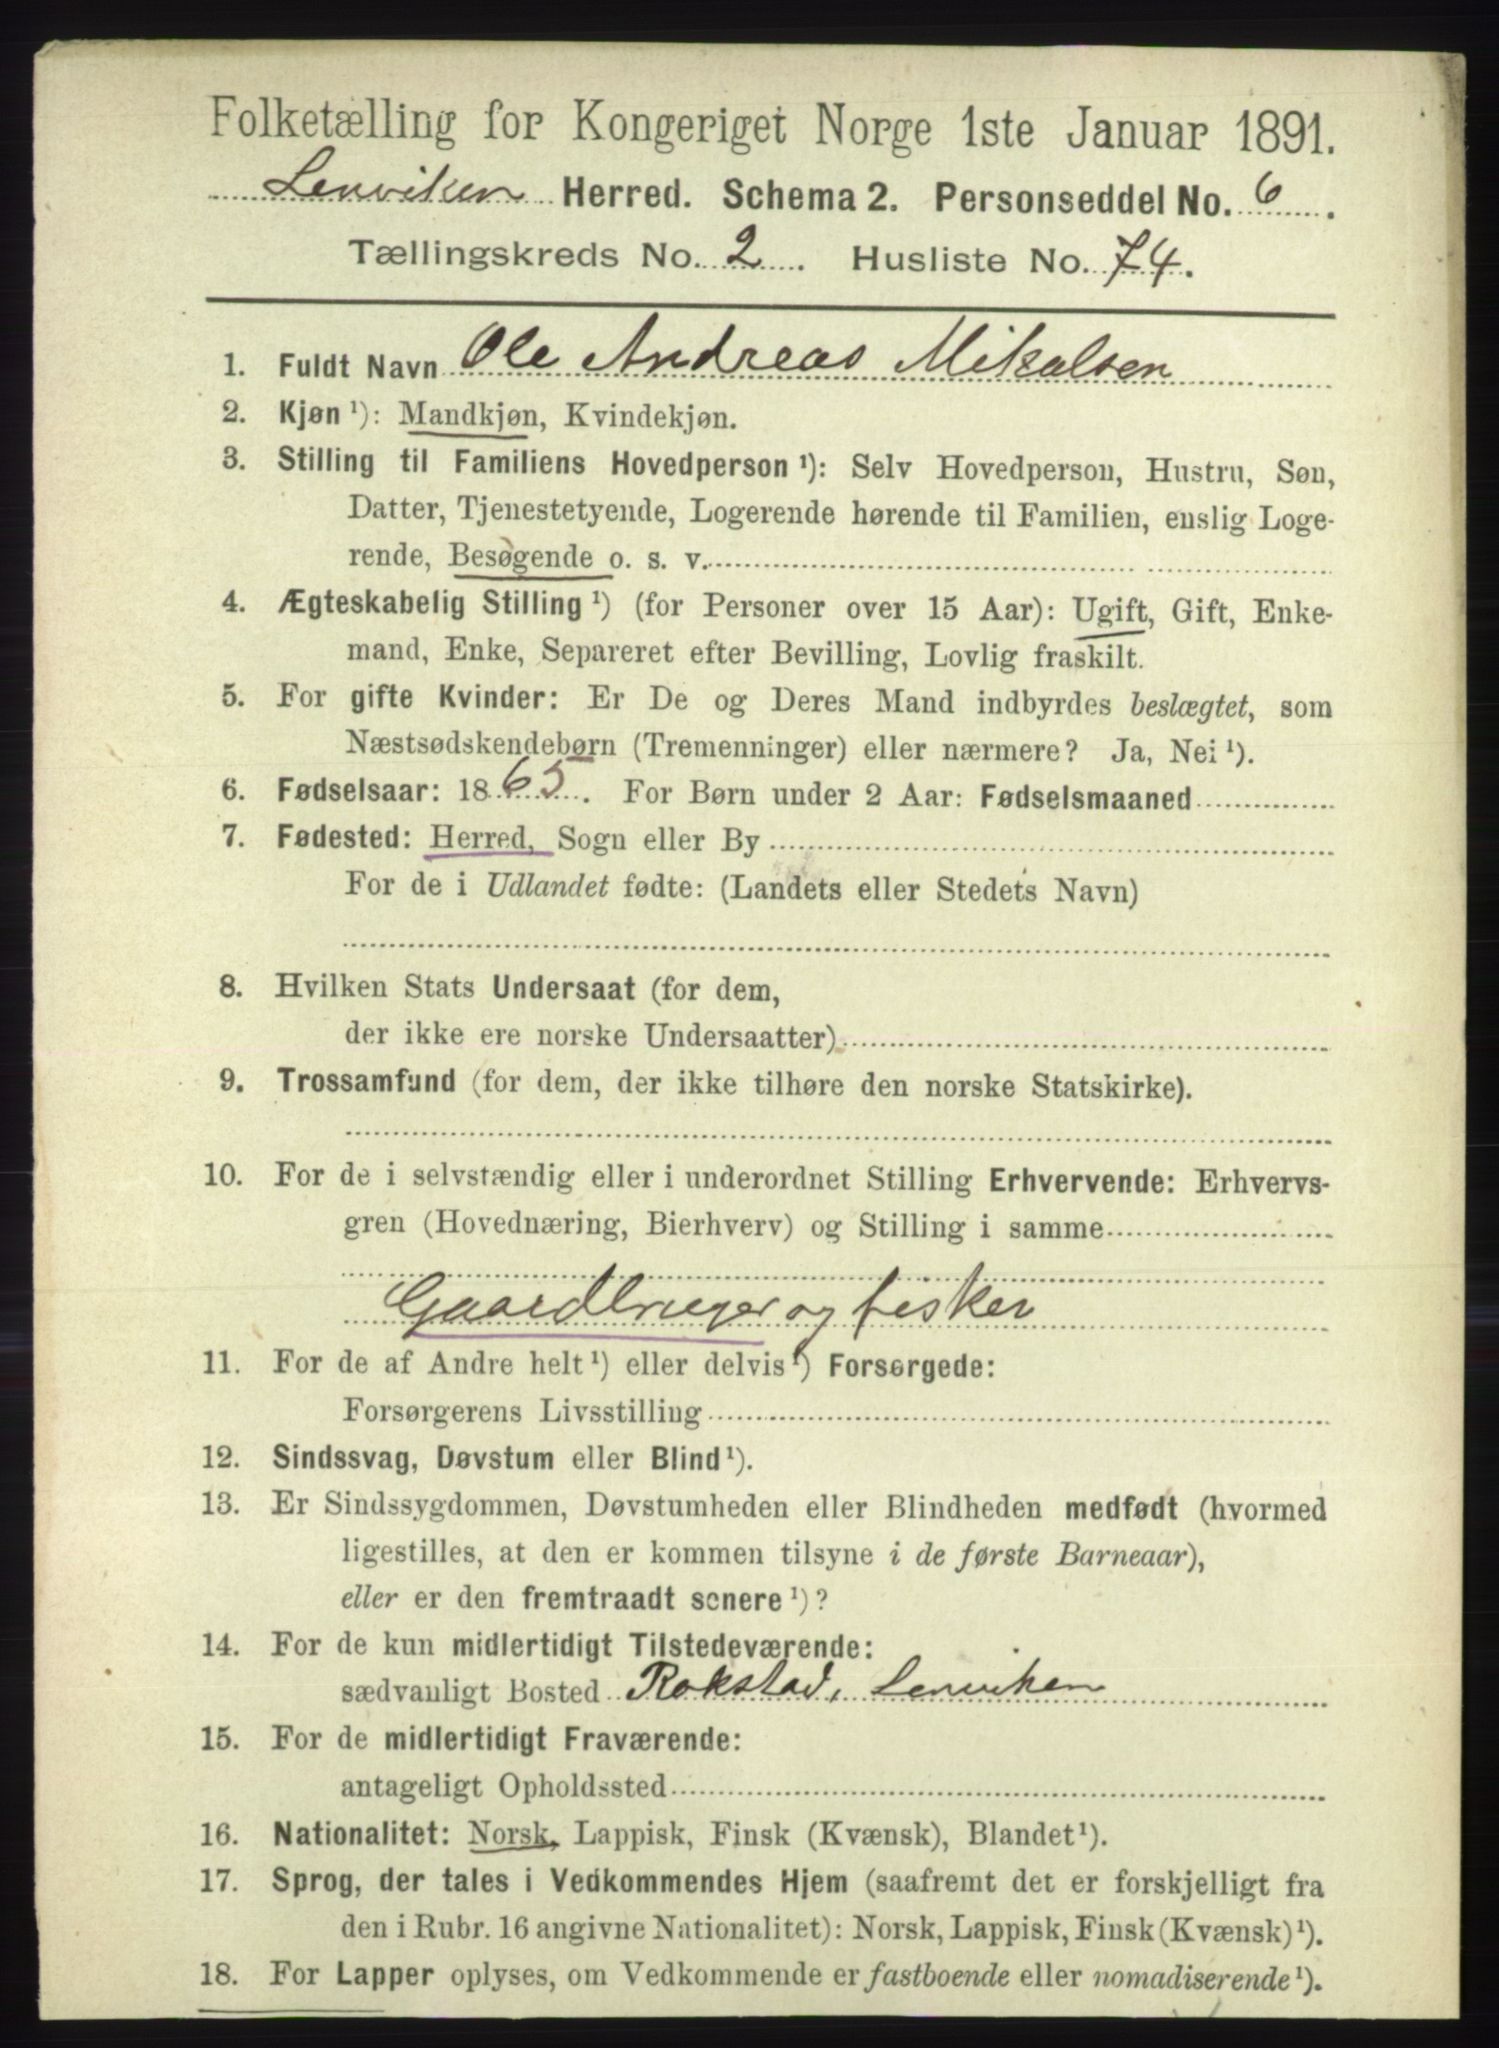 Folketælling for Kongeriget Norge 1ste Januar 1891.
Lenviken Herred. Schema 2. Personseddel No. 6.
Tællingskreds No. 2. Husliste No. 74.
1. Fuldt Navn Ole Andreas Mikalsen
2. Kjøn ¹): Mandkjøn, Kvindekjøn.
3. Stilling til Familiens Hovedperson ¹): Selv Hovedperson, Hustru, Søn,
Datter, Tjenestetyende, Logerende hørende til Familien, enslig Loge-
rende, Besøgende o. s. v.
4. Ægteskabelig Stilling ¹) (for Personer over 15 Aar): Ugift, Gift, Enke-
mand, Enke, Separeret efter Bevilling, Lovlig fraskilt.
5. For gifte Kvinder: Er De og Deres Mand indbyrdes beslægtet, som
Næstsødskendebørn (Tremenninger) eller nærmere? Ja, Nei ¹).
6. Fødselsaar: 1865. For Børn under 2 Aar: Fødselsmaaned
7. Fødested: Herred, Sogn eller By
For de i Udlandet fødte: (Landets eller Stedets Navn)
8. Hvilken Stats Undersaat (for dem,
der ikke ere norske Undersaatter)
9. Trossamfund (for dem, der ikke tilhøre den norske Statskirke).
10. For de i selvstændig eller i underordnet Stilling Erhvervende: Erhvervs-
gren (Hovednæring, Bierhverv) og Stilling i samme
Gaardbruger og fisker
11. For de af Andre helt ¹) eller delvis ¹) Forsørgede:
Forsørgerens Livsstilling
12. Sindssvag, Døvstum eller Blind ¹).
13. Er Sindssygdommen, Døvstumheden eller Blindheden medfødt (hvormed
ligestilles, at den er kommen tilsyne i de første Barneaar),
eller er den fremtraadt senere ¹)?
14. For de kun midlertidigt Tilstedeværende:
sædvanligt Bosted Rokstad, Lenviken
15. For de midlertidigt Fraværende:
antageligt Opholdssted
16. Nationalitet: Norsk, Lappisk, Finsk (Kvænsk), Blandet ¹).
17. Sprog, der tales i Vedkommendes Hjem (saafremt det er forskjelligt fra
den i Rubr. 16 angivne Nationalitet): Norsk, Lappisk, Finsk (Kvænsk) ¹).
18. For Lapper oplyses, om Vedkommende er fastboende eller nomadiserende ¹).